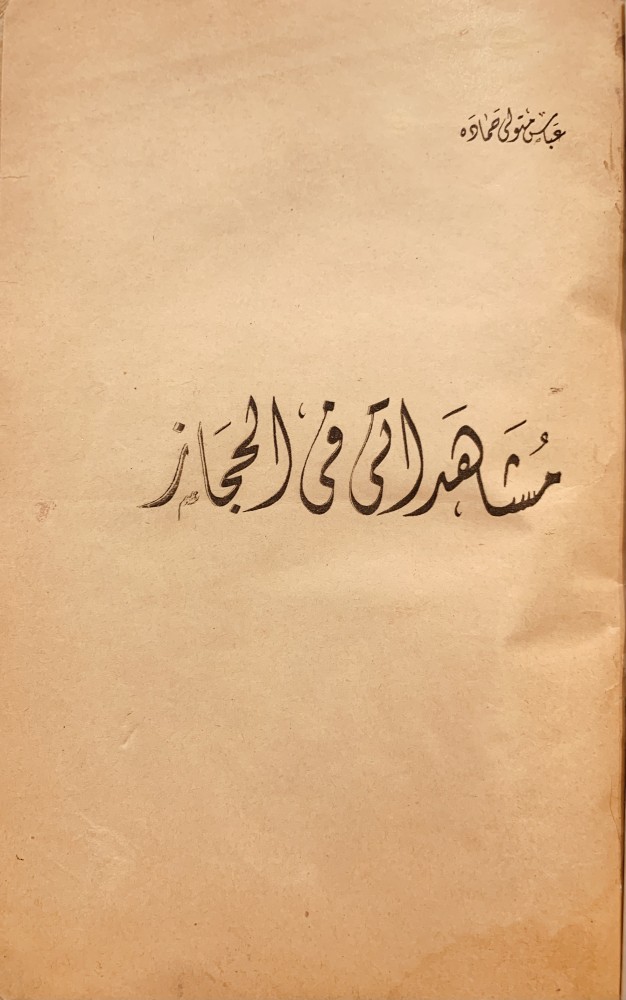 عباس متولى حماده
مشاهداتى فى الحجاز